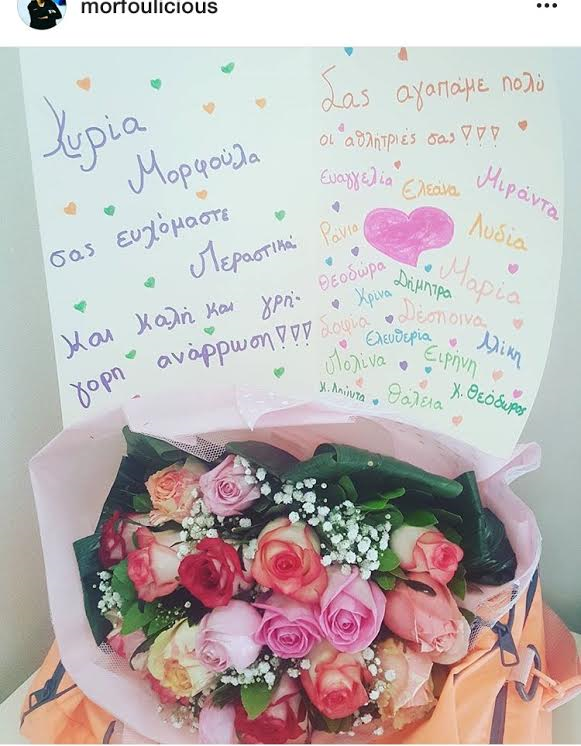 morfoulicious
Κυρία
Μορφούλα
σας ευχόμαστε
Περαστικά
και καλή και γρή-
γορη ανάρρωση!!!
Σας αγαπάμε πολύ
οι αθλήτριές σας!!!
Ευαγγελία Ελεάνα Μιράντα
Ράνια Λυδία
Θεοδώρα Δήμητρα Μαρία
Χρίνα
Σοφία Δέσποινα
Ελευθερία Αλίκη
Μολίνα Ειρήνη
Θάλεια κ. Θεόδωρος